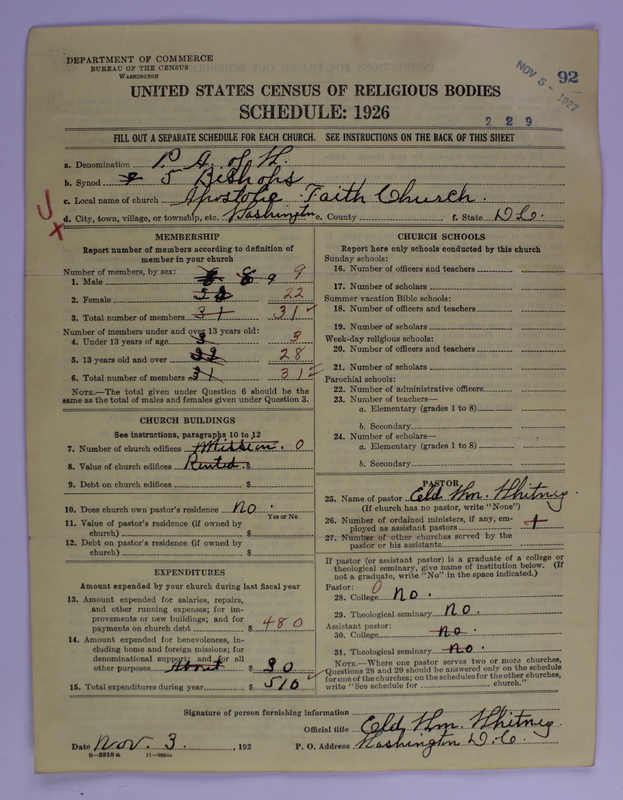 DEPARTMENT OF COMMERCE
BUREAU OF THE CENSUS
WASHINGTON
NOV 5 - 1927
92
UNITED STATES CENSUS OF RELIGIOUS BODIES
SCHEDULE: 1926
2 2 9
FILL OUT A SEPARATE SCHEDULE FOR EACH CHURCH. SEE INSTRUCTIONS ON THE BACK OF THIS SHEET
a. Denomination P. A. of W.
b. Synod 5 Bishops
c. Local name of church Apostolic Faith Church.
d. City, town, village, or township, etc. Washington e. County f. State D.C.
MEMBERSHIP
Report number of members according to definition of
member in your church
Number of members, by sex:
1. Male 8 9 9
2. Female 22
3. Total number of members 31 31
Number of members under and over 13 years old:
4. Under 13 years of age 3 3
5. 13 years old and over 28
6. Total number of members 31 31
NOTE.—The total given under Question 6 should be the
same as the total of males and females given under Question 3.
CHURCH BUILDINGS
See instructions, paragraphs 10 to 12
7. Number of church edifices Mission. 0
8. Value of church edifices Rented. $
9. Debt on church edifices $
10. Does church own pastor's residence No.
Yes or No
11. Value of pastor's residence (if owned by
church) $
12. Debt on pastor's residence (if owned by
church) $
EXPENDITURES
Amount expended by your church during last fiscal year
13. Amount expended for salaries, repairs,
and other running expenses; for im-
provements or new buildings; and for
payments on church debt $ 480
14. Amount expended for benevolences, in-
cluding home and foreign missions; for
denominational support; and for all
other purposes About $ 30
15. Total expenditures during year $ 510
CHURCH SCHOOLS
Report here only schools conducted by this church
Sunday schools:
16. Number of officers and teachers
17. Number of scholars
Summer vacation Bible schools:
18. Number of officers and teachers
19. Number of scholars
Week-day religious schools:
20. Number of officers and teachers
21. Number of scholars
Parochial schools:
22. Number of administrative officers
23. Number of teachers—
a. Elementary (grades 1 to 8)
b. Secondary
24. Number of scholars—
a. Elementary (grades 1 to 8)
b. Secondary
PASTOR
25. Name of pastor Eld Wm. Whitney.
(If church has no pastor, write "None")
26. Number of ordained ministers, if any, em-
ployed as assistant pastors
27. Number of other churches served by the
pastor or his assistants
If pastor (or assistant pastor) is a graduate of a college or
theological seminary, give name of institution below. (If
not a graduate, write "No" in the space indicated.)
Pastor: 0
28. College No.
29. Theological seminary No.
Assistant pastor:
30. College No.
31. Theological seminary No.
NOTE.—Where one pastor serves two or more churches,
Questions 28 and 29 should be answered only on the schedule
for one of the churches; on the schedules for the other churches,
write "See schedule for church."
Signature of person furnishing information
Official title Eld Wm. Whitney.
Date Nov. 3. , 192 P. O. Address Washington D.C.
8—5518a